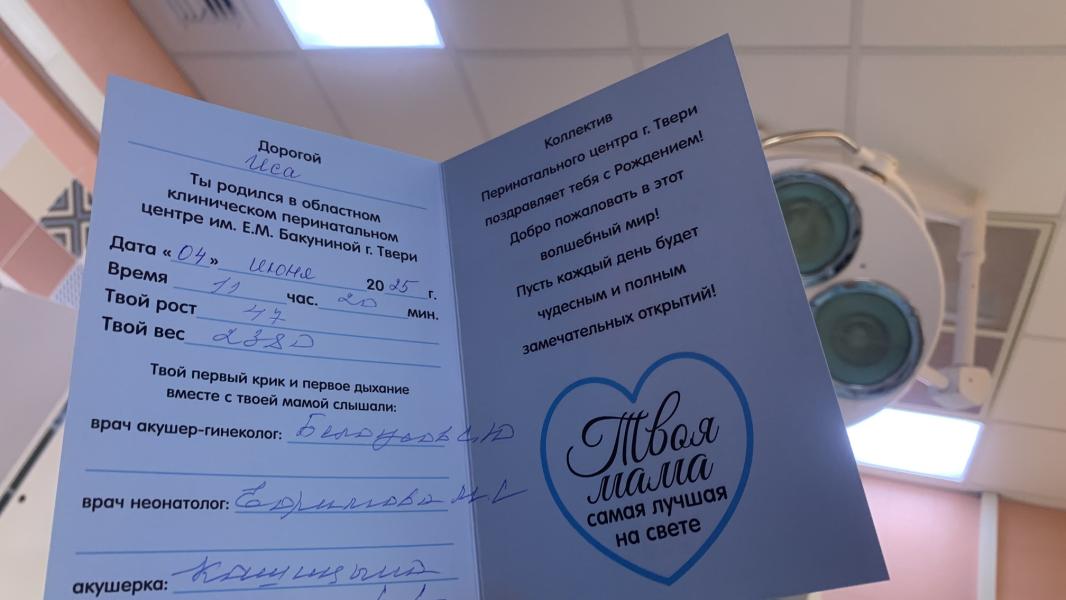 Дорогой
Иса
Ты родился в областном
клиническом перинатальном
центре им. Е.М. Бакуниной г. Твери
Дата «04» июня 2025 г.
Время 11 час. 20 мин.
Твой рост 47
Твой вес 2380
Твой первый крик и первое дыхание
вместе с твоей мамой слышали:
врач акушер-гинеколог: Белоусов С.Ю
врач неонатолог:
акушерка:
Коллектив
Перинатального центра г. Твери
поздравляет тебя с Рождением!
Добро пожаловать в этот
волшебный мир!
Пусть каждый день будет
чудесным и полным
замечательных открытий!
Твоя
мама
самая лучшая
на свете